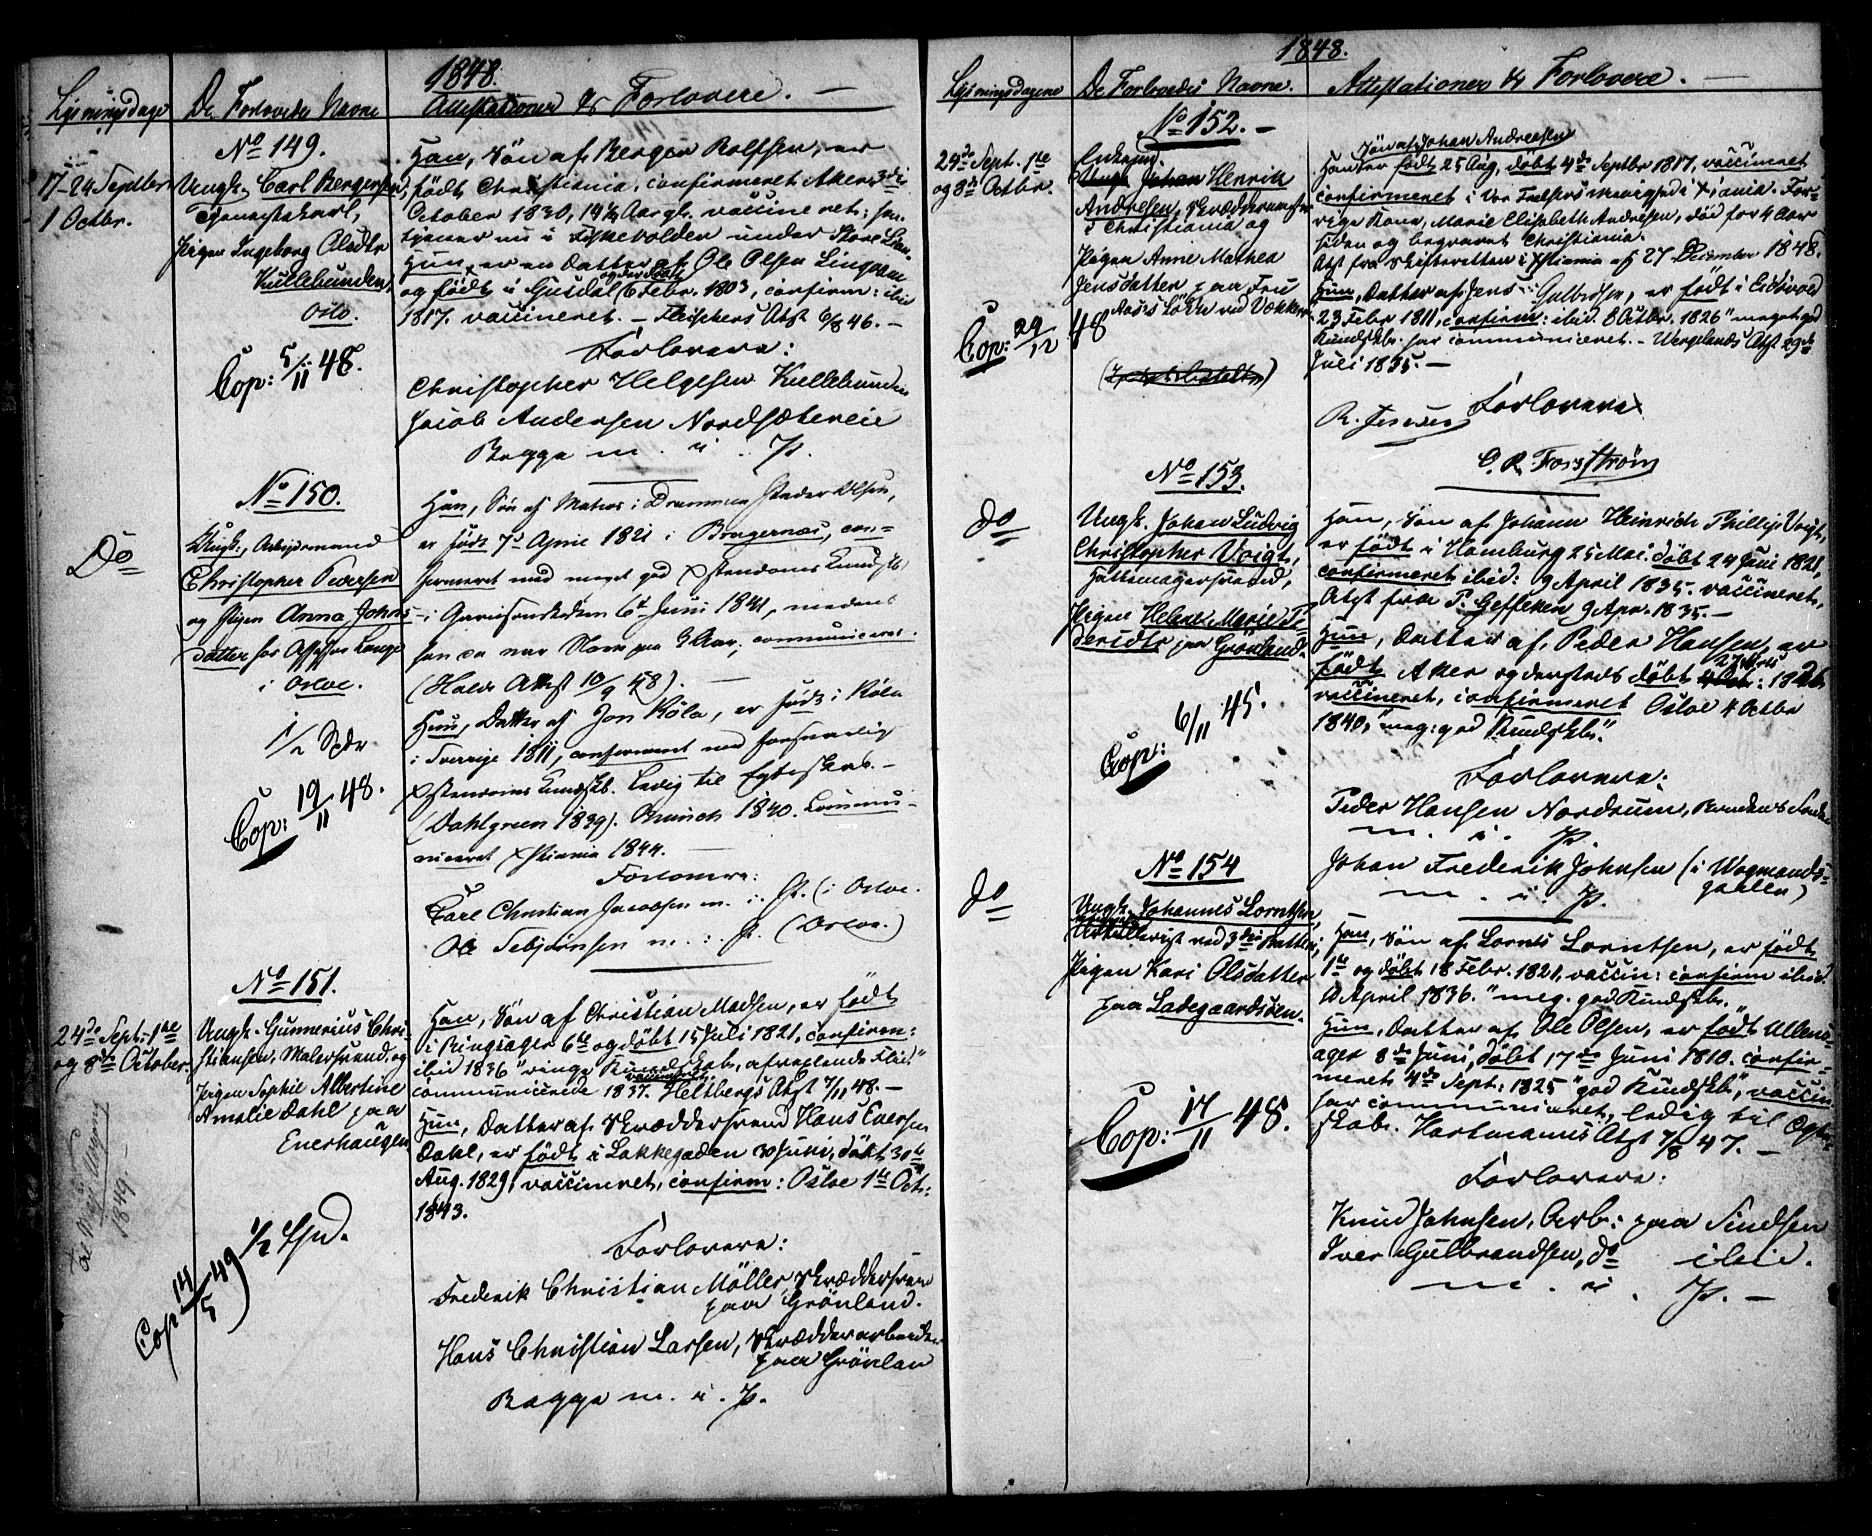 1848.
Lysningsdage De Forlovedes Navne Attestationer & Forlovere. —
No 149.
17-24 Septbr.
1 Octbr.
Ungk. Carl Bergersen,
Tjenestekarl,
Pigen Ingeborg Olsdtr
Kullebunden,
Oslo.
Cop: 5/11 48.
Han, Søn af Berger Rolfsen, er
født Christiania, confirmeret Aker 3die
October 1830, 14½ Aar gl. vaccineret; han
tjener nu i
Hun, er en Datter af Ole Olsen
og der døbt
og født i Gusdal 6 Febr. 1803, confirm: ibid
1817. vaccineret. — Fleischers Atst 6/8 46. —
Forlovere:
Christopher Helgesen Kullebunden
Jacob Andersen Nordsætereie
Begge m. i. P.
No 150.
Do
Ungk., Arbeidsmand
Christopher Pedersen
og Pigen Anna Johns-
datter hos Assessor Lange
i Osloe.
1/2 Spdr
Cop: 19/11 48.
Han, Søn af Matros i Drammen Peder Olsen,
er født 7d April 1821 i Bragernæs, con-
firmeret med meget god Xstendoms Kundsk.
i Garnisonskirken 6te Juni 1841,
han da var Aar, communiceret.
(Holds Attest 10/9 48). —
Hun, Datter af Jon Köla, er født i Köla
i Sverrige 1811, confirmeret med forsvarlig
Xstendoms Kundsk. Ledig til Egteskab. —
(Dahlgreen 1839). Brunich 1840. Commu-
niceret Xstiania 1844. —
Forlovere:
Carl Christian Jacobsen m. i. P. (i Osloe.
Ole Tebjørnsen m. i. P. (Osloe.)
No 151.
24de Sept. 1ste
og 8de October.
Ungk. Gunnerius Chri-
stiansen, Malersvend, og
Pigen Sophie Albertine
Amalie Dahl paa
Enerhaugen
1/2 Spd.
Cop: 14/5 49
1849.
Han, Søn af Christian Madsen, er født
i Ringsager 6te og døbt 15 Juli 1821, confirm:
ibid 1836 "ringe Kundskab, Flid"
vaccineret
communicerede 1837. Heltbergs Atst 7/11 48. —
Hun, Datter af Skræddersvend Hans Evensen
Dahl, er født i Lakkegaden 30 Juni, døbt 30te
Aug. 1829, vaccineret, confirm: Osloe 1ste Oct:
1843.
Forlovere:
Frederik Christian Möller, Skræddersvend
paa Grönland.
Hans Christian Larsen, Skrædderarbeider
paa Grönland
Begge m. i. P.
1848.
Lysningsdagene De Forlovedes Navne. Attestationer & Forlovere. —
No 152. —
24de Sept. 1ste
og 8de Octbr.
Enkem.
Ungk. Johan Henrik
Andresen, Skræddermester
i Christiania og
Pigen Anne Mathea
Jensdatter paa Fru
Aass's Løkke ved Vækker
Cop: 29/12 48
Søn af Johan Andreesen
Han er født 25 Aug, døbt 4de Septbr 1817, vaccineret
confirmeret i Vor Frelsers Menighed i Xstiania. For-
rige Kone, Marie Elisabeth Andresen, død for 4 Aar
siden og begravet Christiania.
Atst fra Skifteretten i Xstiania af 27 December 1848.
Hun, Datter af Jens Gulbrdsen, er født i Eidsvold
23 Febr 1811, confirm: ibid. 8 Octbr. 1826 "meget god
Kundskb. har communiceret. — Wergelands Atst 29de
Juli 1835. —
Forlovere
R. Jensen
C. R. Forsström
No 153.
do
Ungk. Johan Ludvig
Christopher Voigt,
Hattemagersvend,
Pigen Helene Marie Pe-
dersdtr paa Grönland.
Cop: 6/11 45.
Han, Søn af Johann Heinrich Phillip Voigt,
er født i Hamburg 25 Mai. døbt 24 Juni 1821,
confirmeret ibid: 9 April 1835. vaccineret,
Atst fra P. Geffcken 9 Apr. 1835. —
Hun, Datter af Peder Hansen, er
født Aker og dersteds døbt 1826
vaccineret, confirmeret Osloe 4 Octbr
1840, "meg: god Kundskb."
Forlovere:
Peder Hansen Nordrum,
m. i. P.
Johan Frederik Johnsen (i Vognmands-
gaden)
m. i. P.
No 154
do
Ungk. Johannes Lorntsen,
Artillerist ved 3die Batteri,
Pigen Kari Olsdatter
paa Ladegaardsöen.
Cop: 17/11 48.
Han, Søn af Lornts Lorntsen, er født
1ste og døbt 18 Febr. 1821, vaccin: confirm ibid.
April 1836. "meg. god Kundskb."
Hun, Datter af Ole Olsen, er født Ullens-
ager 8de Juni, døbt 17de Juni 1810. confir-
meret 4de Sept: 1825 "god Kundskb", vaccin
har communiceret, ledig til Egte-
skab. Hartmanns Atst 7/8 47. —
Forlovere:
Knud Johnsen, Arb: paa Tindsen
Iver Gulbrandsen, do ibid.
m. i. P. —